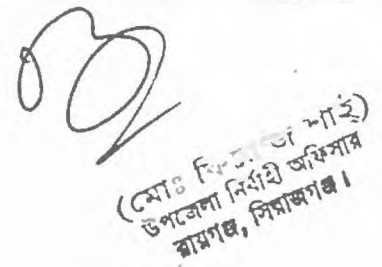 (মোঃ শাহ)
উপজেলা নির্বাহী অফিসার
রায়গঞ্জ, সিরাজগঞ্জ।